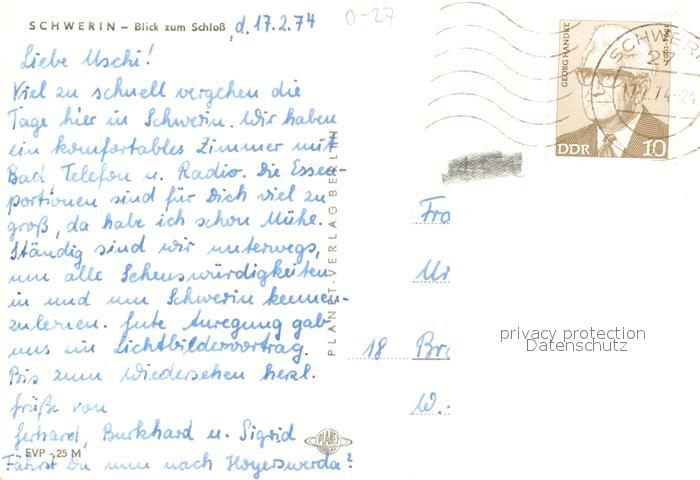 SCHWERIN – Blick zum Schloß, d. 17.2.74
0-27
Liebe Uschi!
Viel zu schnell vergehen die
Tage hier in Schwerin. Wir haben
ein komfortables Zimmer mit
Bad, Telefon u. Radio. Die Essen-
portionen sind für Dich viel zu
groß, da habe ich schon Mühe.
Ständig sind wir unterwegs,
um alle Sehenswürdigkeiten
in und um Schwerin kennen-
zulernen. Gute Anregung gab
uns ein Lichtbildervortrag.
Bis zum Wiedersehen herzl.
Grüße von
Gerhard, Burkhard u. Sigrid
EVP -,25 M
Fährst Du nun nach Hoyerswerda?
PLANET-VERLAG BERLIN
PLANET
GEORG HANDKE
DDR 10
SCHWERIN
27
17.2.74-21
Fra
Ur
18 Br
W.
privacy protection
Datenschutz